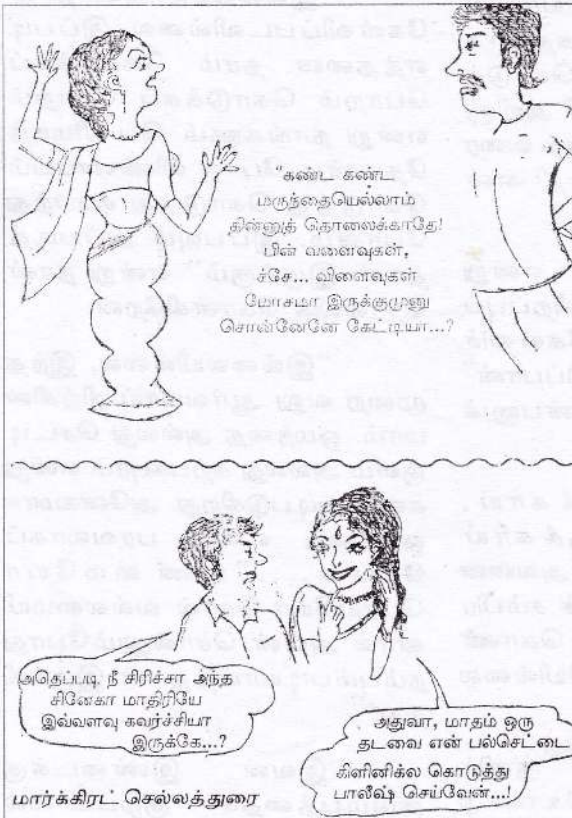 "கண்ட கண்ட
மருந்தையெல்லாம்
தின்னுத் தொலைக்காதே!
பின் வளைவுகள்,
ச்சே... விளைவுகள்
மோசமா இருக்குமுனு
சொன்னேனே கேட்டியா...?
அதெப்படி நீ சிரிச்சா அந்த
சினேகா மாதிரியே
இவ்வளவு கவர்ச்சியா
இருக்கே...?
அதுவா, மாதம் ஒரு
தடவை என் பல்செட்டை
கிளினிக்ல கொடுத்து
பாலீஷ் செய்வேன்...!
மார்க்கிரட் செல்லத்துரை